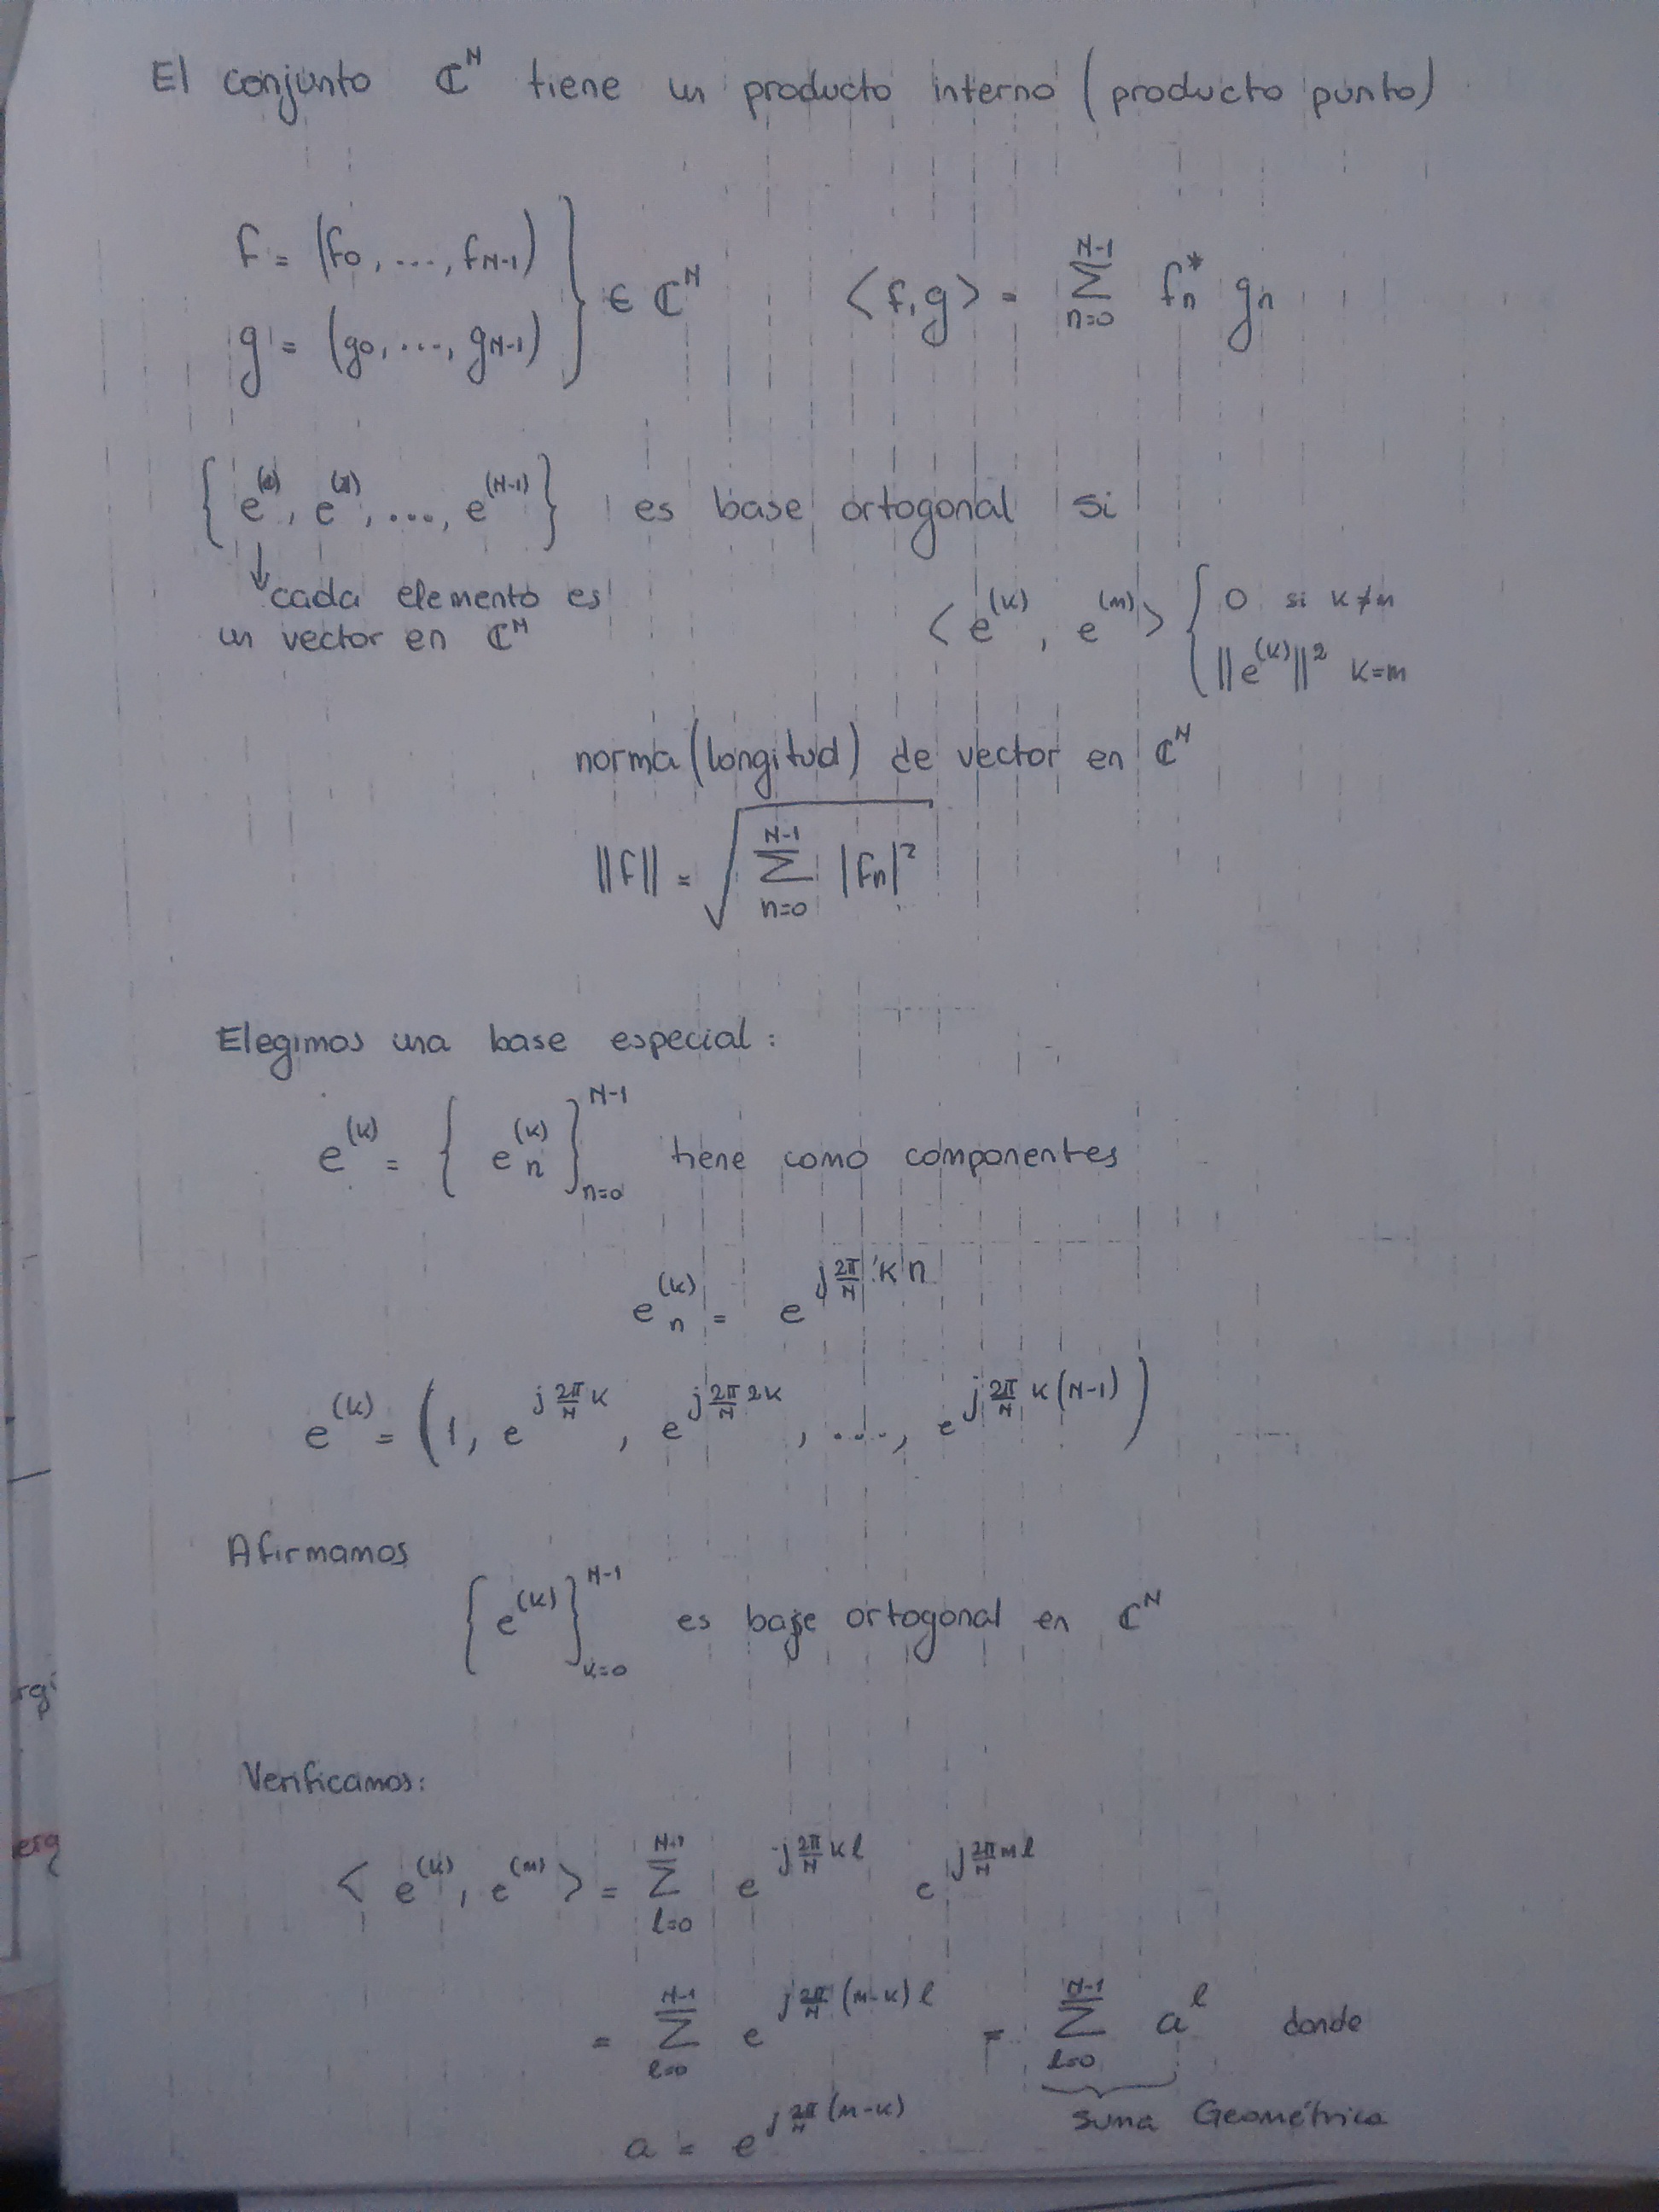 El conjunto ℂ^N tiene un producto interno (producto punto)
f = (f_0, ..., f_{N-1})
g = (g_0, ..., g_{N-1}) } ∈ ℂ^N    <f,g> = Σ_{n=0}^{N-1} f_n^* g_n
{e^{(0)}, e^{(1)}, ..., e^{(N-1)}} es base ortogonal si
↓ cada elemento es
un vector en ℂ^N
<e^{(k)}, e^{(m)}> { 0 si k≠m
||e^{(k)}||^2 k=m
norma (longitud) de vector en ℂ^N
||f|| = √(Σ_{n=0}^{N-1} |f_n|^2)
Elegimos una base especial:
e^{(k)} = {e_n^{(k)}}_{n=0}^{N-1} tiene como componentes
e_n^{(k)} = e^{j 2π/N k n}
e^{(k)} = (1, e^{j 2π/N k}, e^{j 2π/N 2k}, ..., e^{j 2π/N k(N-1)})
Afirmamos
{e^{(k)}}_{k=0}^{N-1} es base ortogonal en ℂ^N
Verificamos:
<e^{(k)}, e^{(m)}> = Σ_{l=0}^{N-1} e^{j 2π/N k l} e^{j 2π/N m l}
= Σ_{l=0}^{N-1} e^{j 2π/N (m-k) l} = Σ_{l=0}^{N-1} a^l donde
suma Geométrica
a = e^{j 2π/N (m-k)}
rgi
erg